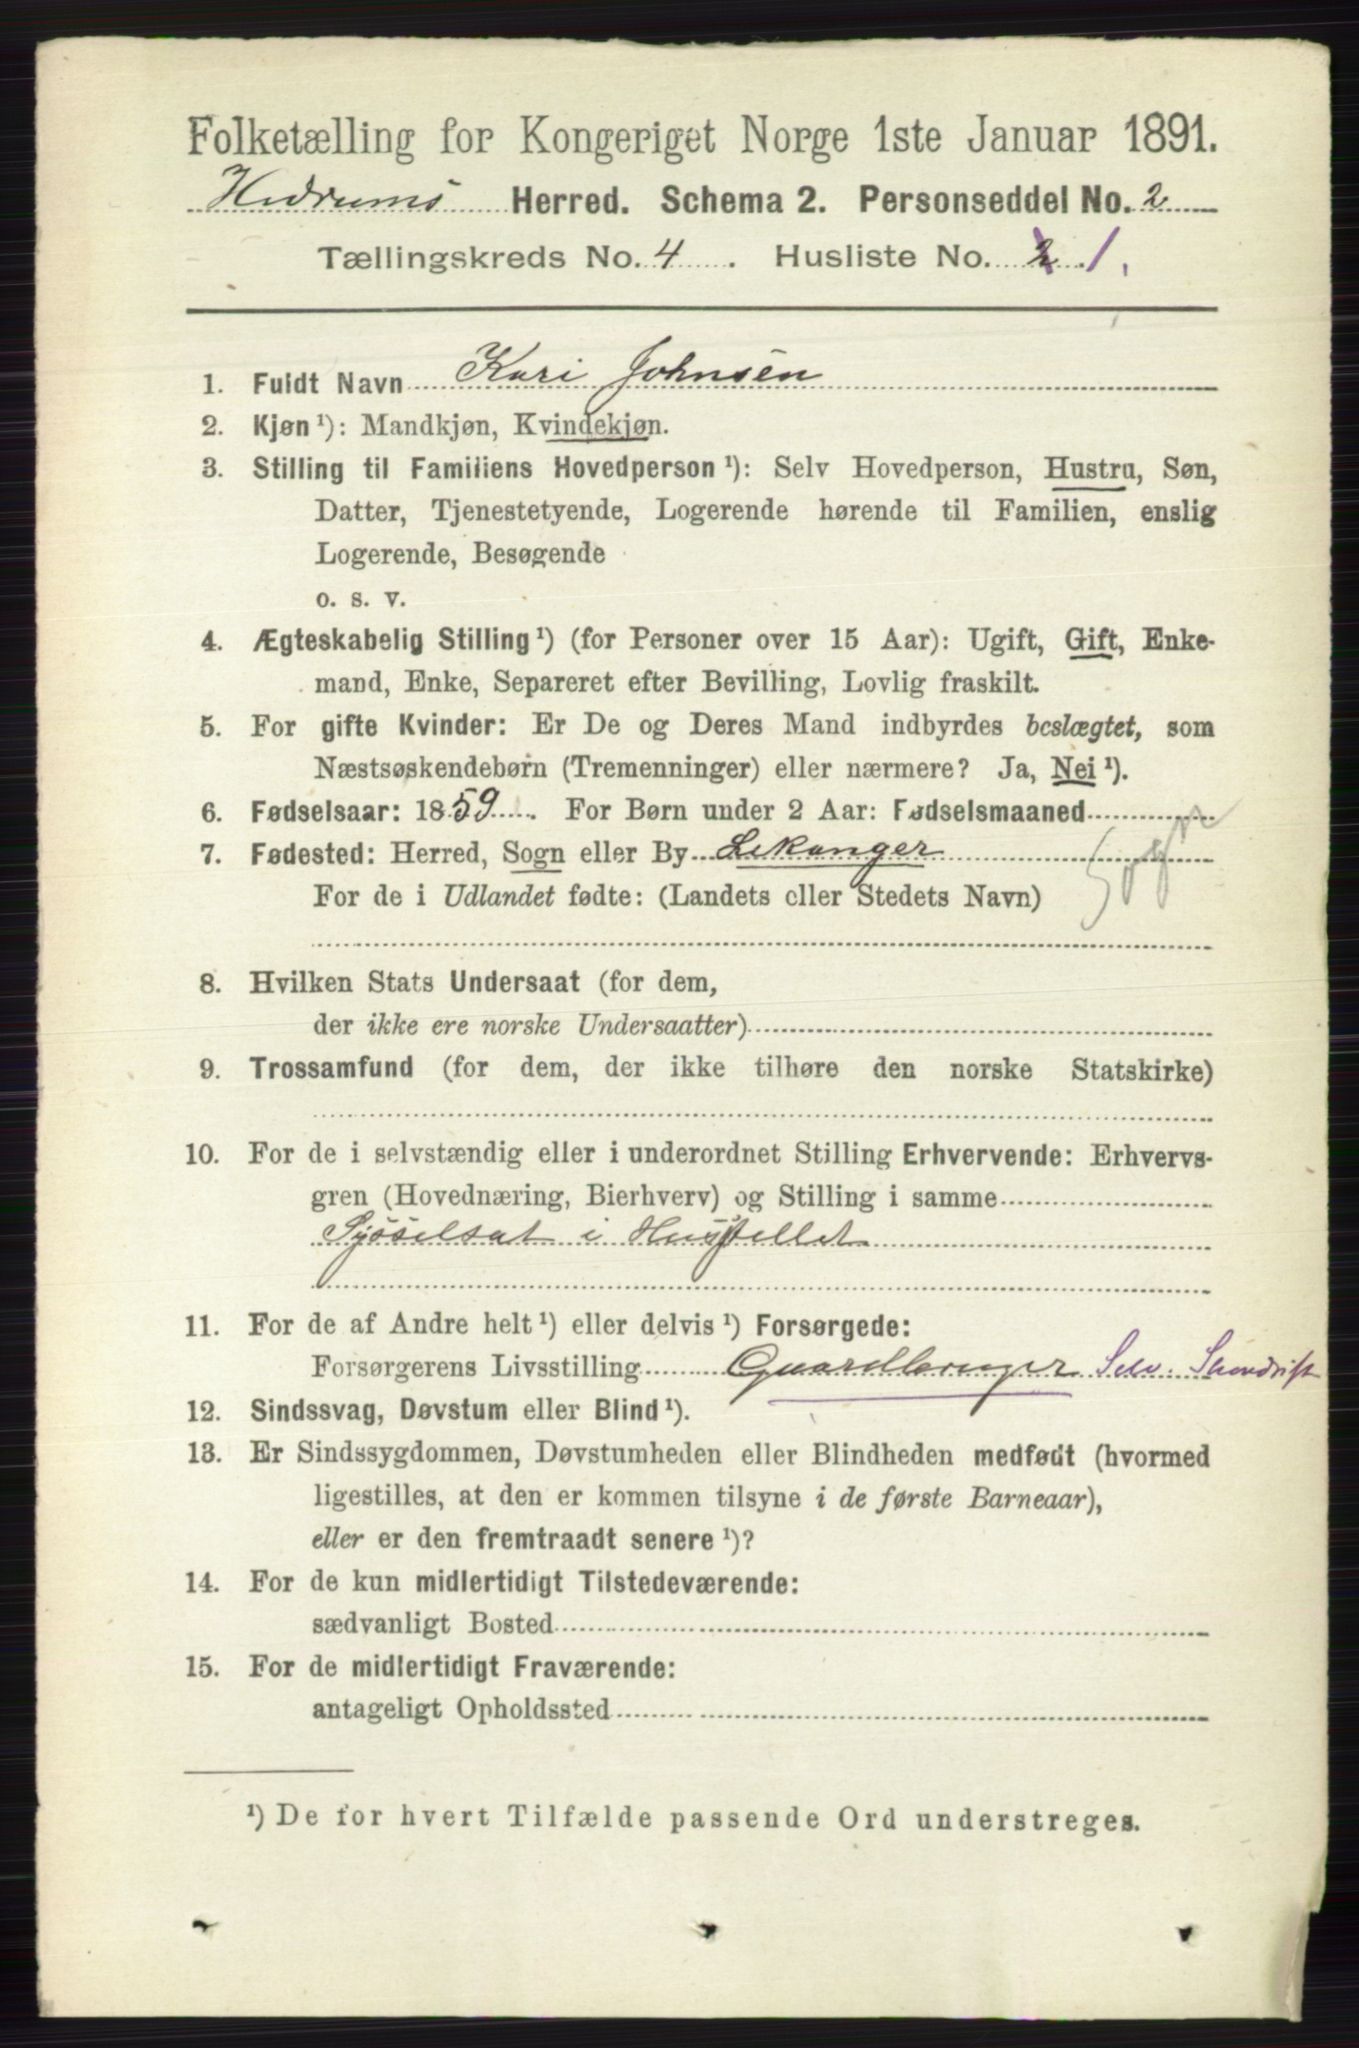 Folketælling for Kongeriget Norge 1ste Januar 1891.
Hedrums Herred. Schema 2. Personseddel No. 2
Tællingskreds No. 4 . Husliste No. 2 . 1.
1. Fuldt Navn Kari Johnsen
2. Kjøn ¹): Mandkjøn, Kvindekjøn.
3. Stilling til Familiens Hovedperson ¹): Selv Hovedperson, Hustru, Søn,
Datter, Tjenestetyende, Logerende hørende til Familien, enslig
Logerende, Besøgende
o. s. v.
4. Ægteskabelig Stilling ¹) (for Personer over 15 Aar): Ugift, Gift, Enke-
mand, Enke, Separeret efter Bevilling, Lovlig fraskilt.
5. For gifte Kvinder: Er De og Deres Mand indbyrdes beslægtet, som
Næstsøskendebørn (Tremenninger) eller nærmere? Ja, Nei ¹).
6. Fødselsaar: 1859 . For Børn under 2 Aar: Fødselsmaaned
7. Fødested: Herred, Sogn eller By Lekanger Sogn
For de i Udlandet fødte: (Landets eller Stedets Navn)
8. Hvilken Stats Undersaat (for dem,
der ikke ere norske Undersaatter)
9. Trossamfund (for dem, der ikke tilhøre den norske Statskirke)
10. For de i selvstændig eller i underordnet Stilling Erhvervende: Erhvervs-
gren (Hovednæring, Bierhverv) og Stilling i samme
Sysselsat i Husstellet
11. For de af Andre helt ¹) eller delvis ¹) Forsørgede:
Forsørgerens Livsstilling Gaardbruger Selv.
12. Sindssvag, Døvstum eller Blind ¹).
13. Er Sindssygdommen, Døvstumheden eller Blindheden medfødt (hvormed
ligestilles, at den er kommen tilsyne i de første Barneaar),
eller er den fremtraadt senere ¹)?
14. For de kun midlertidigt Tilstedeværende:
sædvanligt Bosted
15. For de midlertidigt Fraværende:
antageligt Opholdssted
¹) De for hvert Tilfælde passende Ord understreges.